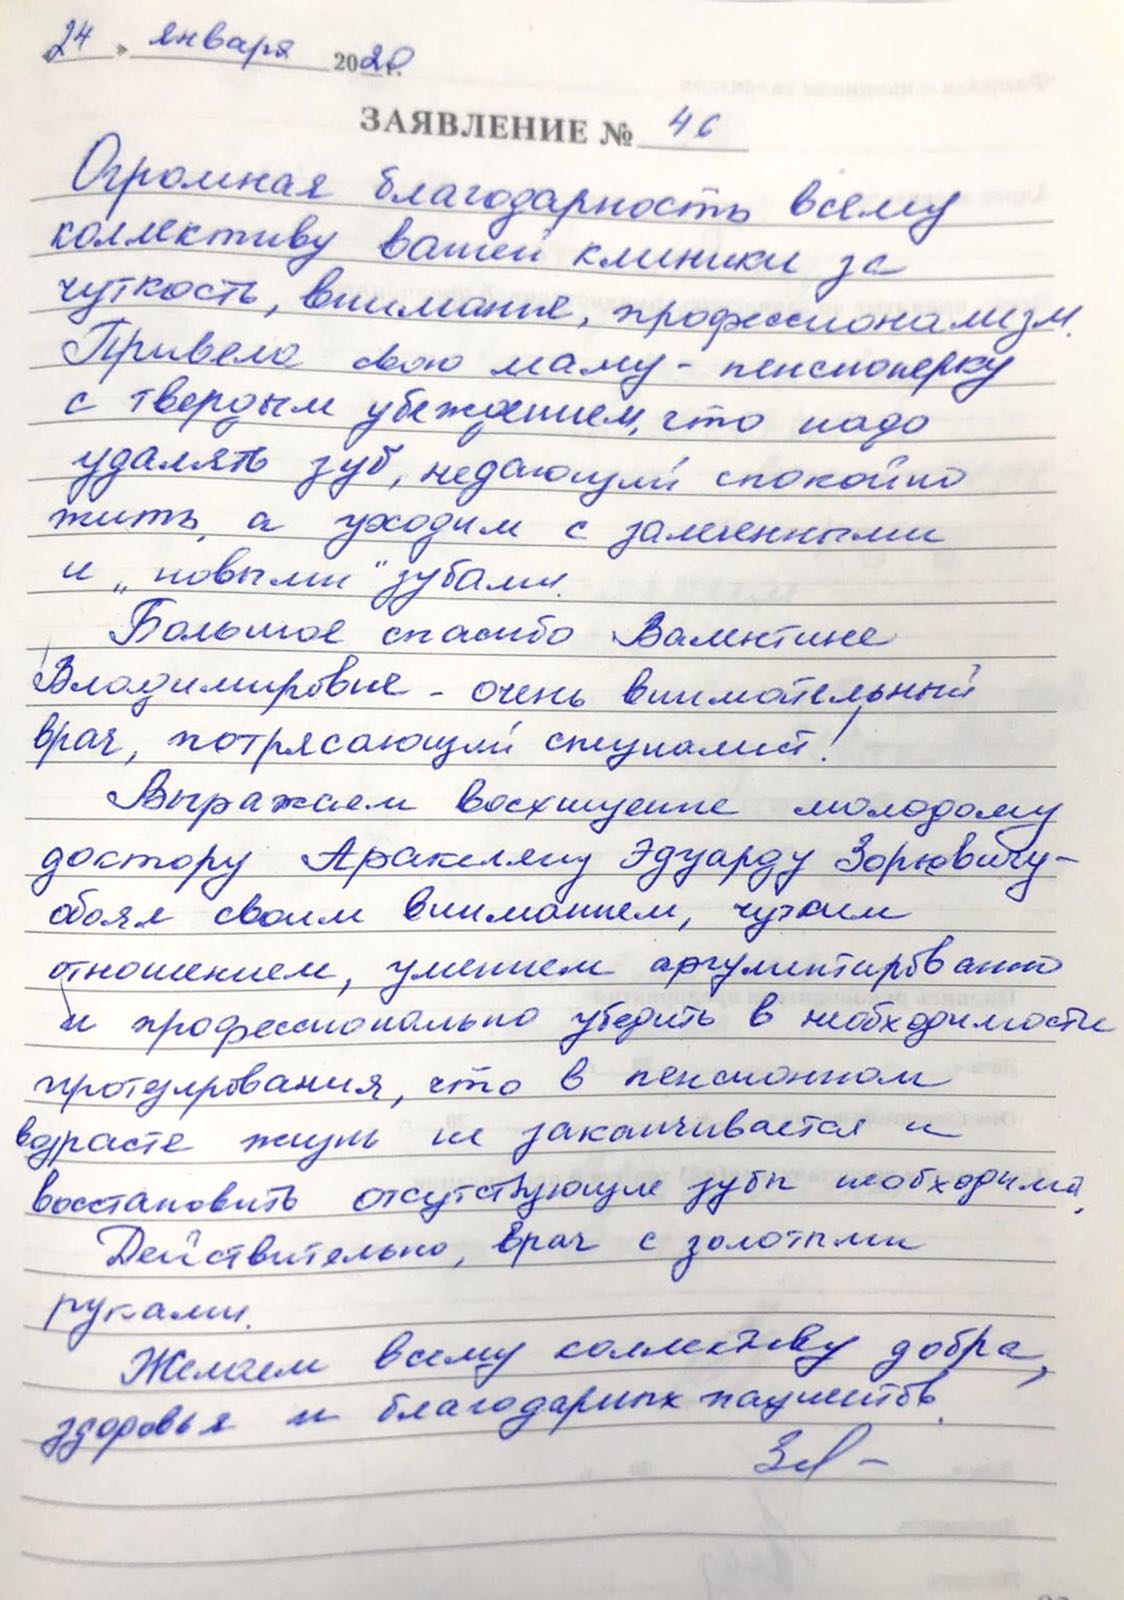 24 » января 2020 г.
ЗАЯВЛЕНИЕ № 46
Огромная благодарность всему
коллективу вашей клиники за
чуткость, внимание, профессионализм.
Привела свою маму - пенсионерку
с твердым убеждением, что надо
удалять зуб, недающий спокойно
жить, а уходим с залеченными
и „новыми" зубами.
Большое спасибо Валентине
Владимировне - очень внимательный
врач, потрясающий специалист!
Выражаем восхищение молодому
доктору Аракеляну Эдуарду Зорювичу -
обоял своим вниманием, чутким
отношением, умением аргументированно
и профессионально убедить в необходимости
протезирования, что в пенсионном
возрасте жизнь не заканчивается и
восстановить отсутствующие зубы необходимо.
Действительно, врач с золотыми
руками.
Желаем всему коллективу добра,
здоровья и благодарных пациентов.